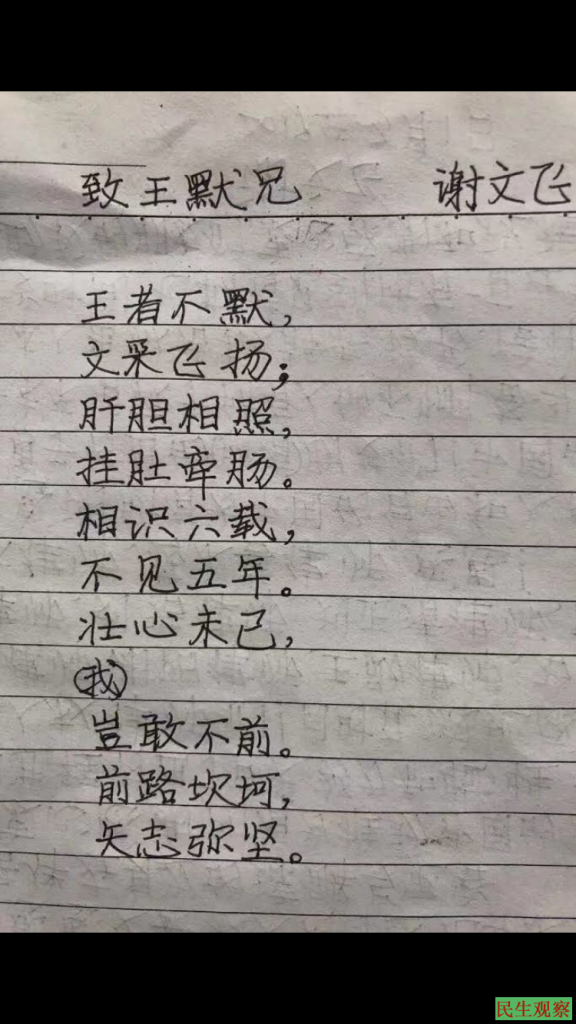 致王默兄 谢文飞
王者不默，
文采飞扬；
肝胆相照，
挂肚牵肠。
相识六载，
不见五年。
壮心未已，
(我)
岂敢不前。
前路坎坷，
矢志弥坚。
民生观察